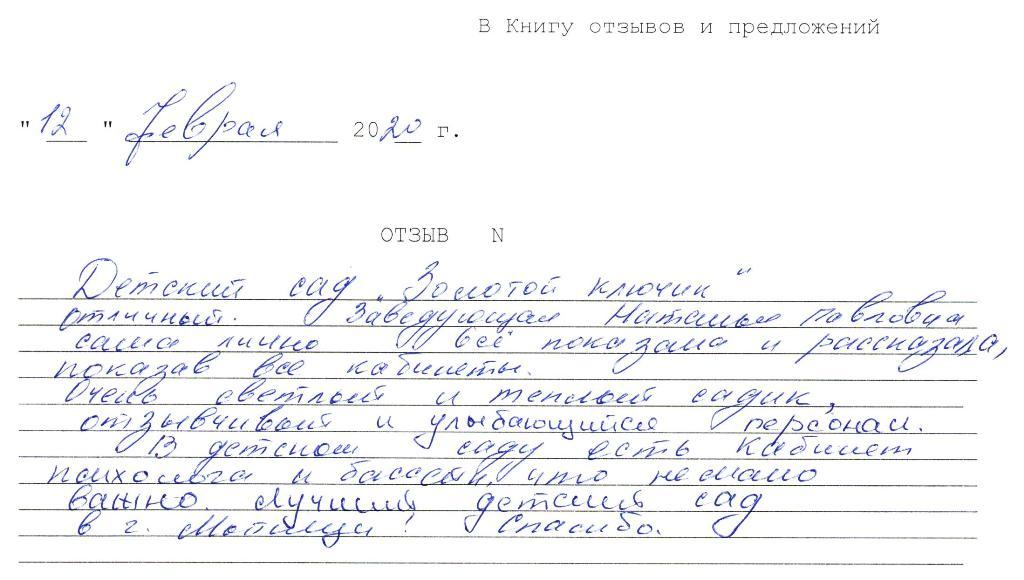 В Книгу отзывов и предложений
"12" февраля 2020 г.
ОТЗЫВ N
Детский сад „Золотой ключик"
отличный. Заведующая Наталья Павловна
сама лично всё показала и рассказала,
показав все кабинеты.
Очень светлый и теплый садик,
отзывчивый и улыбающийся персонал.
В детском саду есть кабинет
психолога и бассейн, что немало
важно. Лучший детский сад
в г. Мытищи! Спасибо.